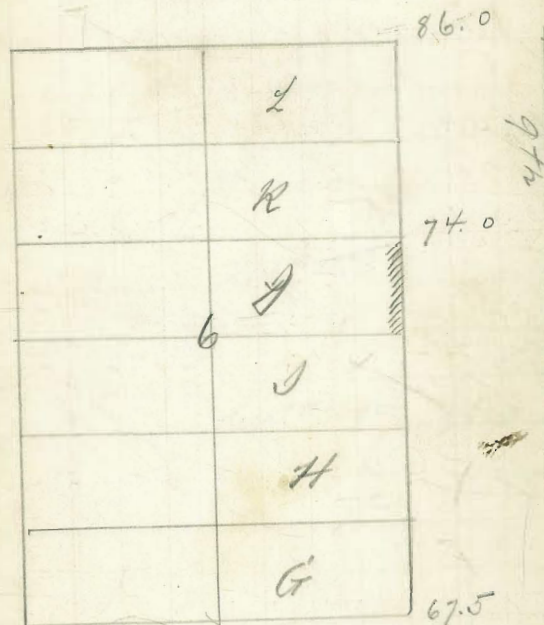 86.0
L
9th
K
74.0
J
6
I
H
G
67.5